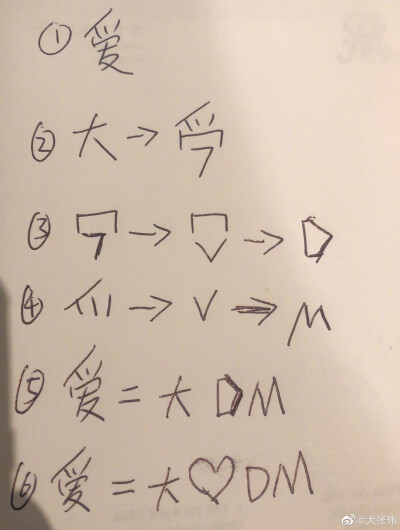 ① 爱
② 大 → 
③ → → D
④ → V → M
⑤ 爱 = 大 DM
⑥ 爱 = 大♡DM
@大张伟